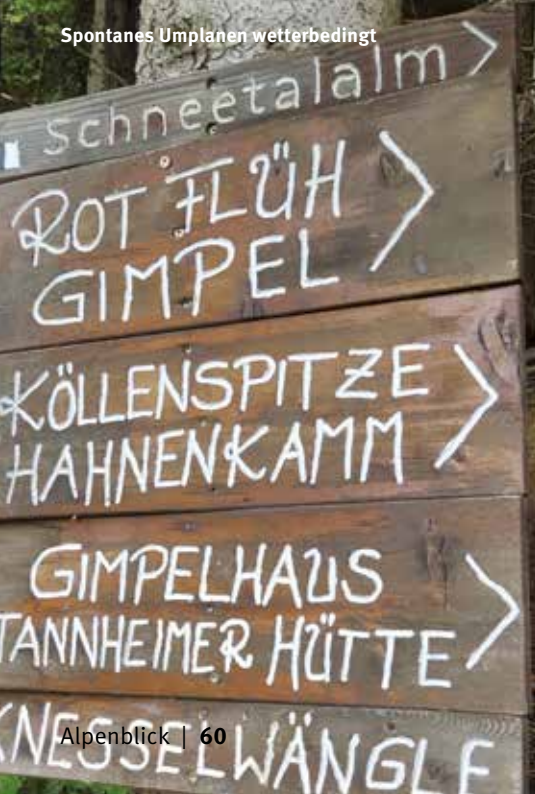 Spontanes Umplanen wetterbedingt
Schneetalalm >
ROT FLÜH
GIMPEL >
KÖLLENSPITZE
HAHNENKAMM >
GIMPELHAUS
TANNHEIMER HÜTTE >
NESSELWÄNGLE
Alpenblick | 60